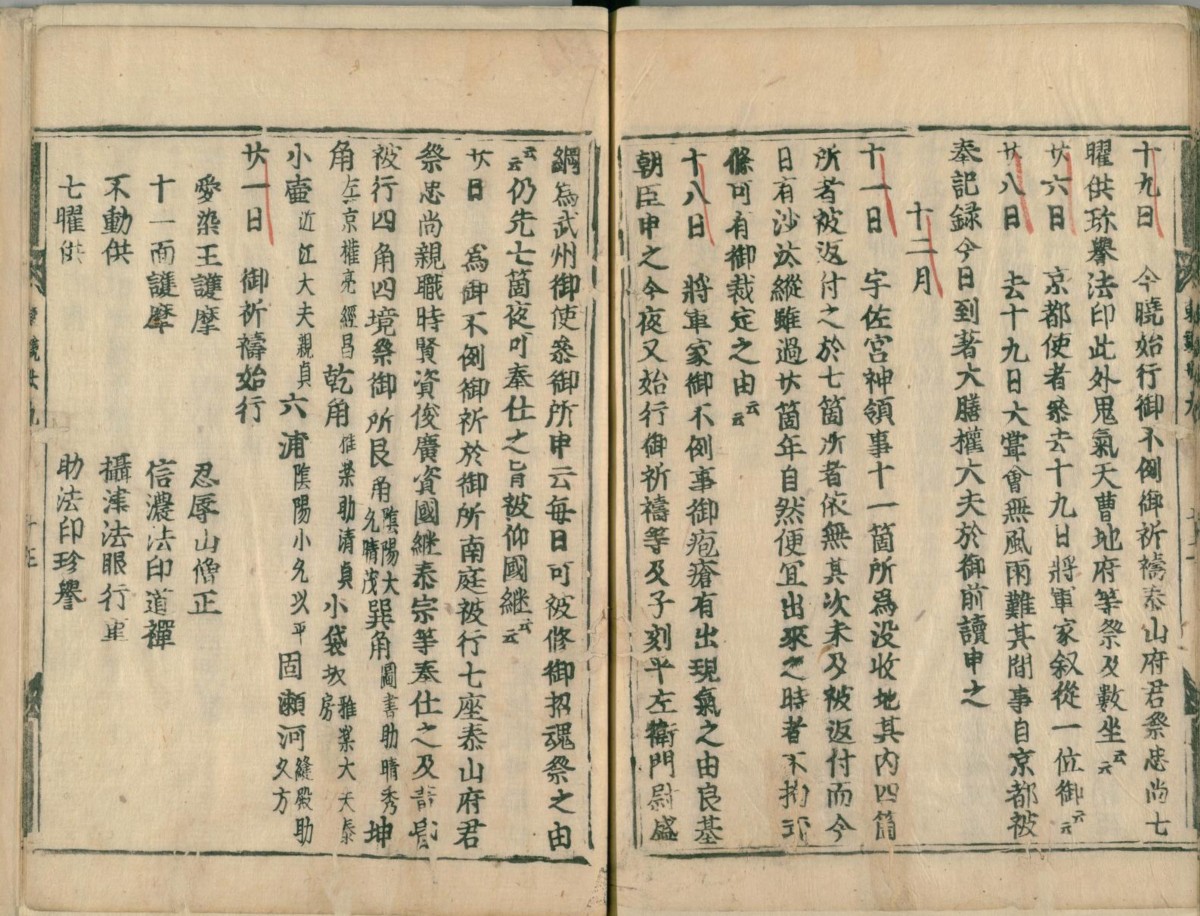 十九日　今曉始行御不例御祈禱泰山府君祭忠尚七
曜供珎譽法印此外鬼氣天曹地府等祭及數坐云云
廿六日　京都使者參去十九日將軍家叙從一位御云云
廿八日　去十九日大嘗會無風雨難其間事自京都被
奉記録今日到著大膳權大夫於御前讀申之
十二月
十一日　宇佐宮神領事十一箇所爲没收地其内四箇
所者被返付之於七箇所者依無其次未及被返付而今
日有沙汰縱雖過廿箇年自然便冝出來之時者不拘
條可有御裁定之由云云
十八日　將軍家御不例事御疱瘡有出現氣之由良基
朝臣申之今夜又始行御祈禱等及子刻平左衛門尉盛
綱為武州御使參御所申云每日可被修御招魂祭之由
云云仍先七箇夜可奉仕之旨被仰國継云云
廿日　為御不例御祈於御所南庭被行七座泰山府君
祭忠尚親職時賢資俊廣資國継泰宗等奉仕之及
被行四角四境祭御所艮角陰陽大允晴茂巽角圖書助晴秀坤
角左京權亮經昌乾角雅樂助清貞小袋坂雅樂大夫泰房
小壷近江大夫親貞六浦陰陽小允以平固瀬河縫殿助文方
廿一日　御祈禱始行
愛染王護摩　忍辱山僧正
十一面護摩　信濃法印道禪
不動供　攝津法眼行重
七曜供　助法印珍譽